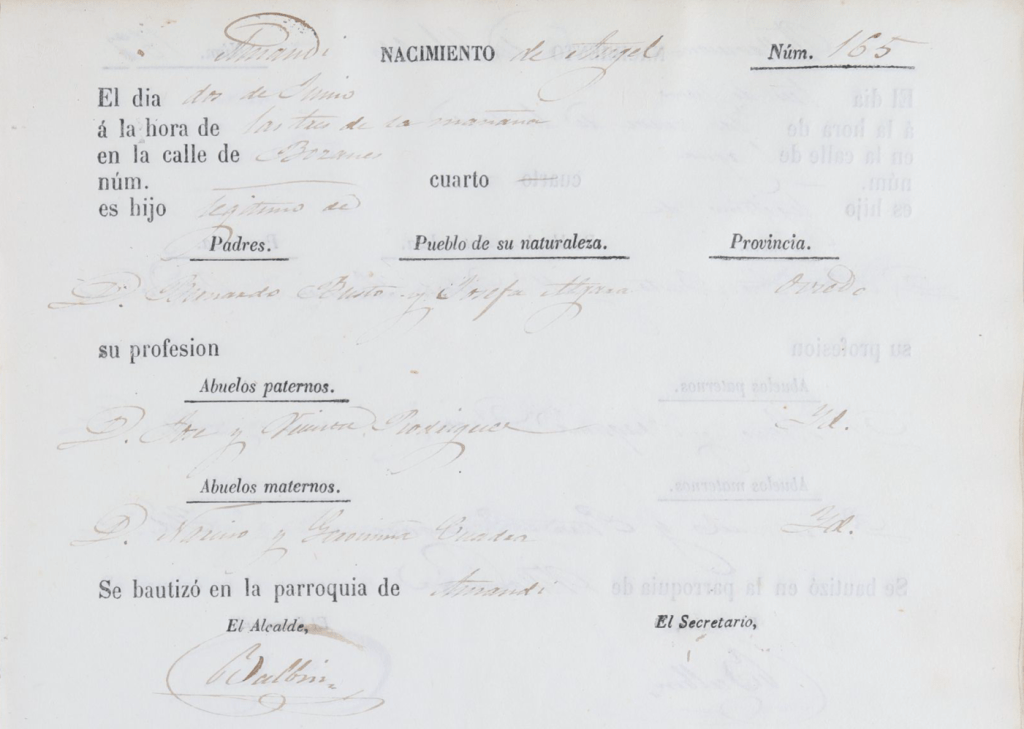 Amandi NACIMIENTO de Angel Núm. 165
El dia dos de Junio
á la hora de las tres de la mañana
en la calle de
núm. cuarto
es hijo legitimo de
Padres. Pueblo de su naturaleza. Provincia.
D. Bernardo Busto y Josefa Oviedo
su profesion
Abuelos paternos.
D. Jose y Rodriguez Yd.
Abuelos maternos.
D. y Geronima Yd.
Se bautizó en la parroquia de Amandi
El Alcalde, El Secretario,
Balbin